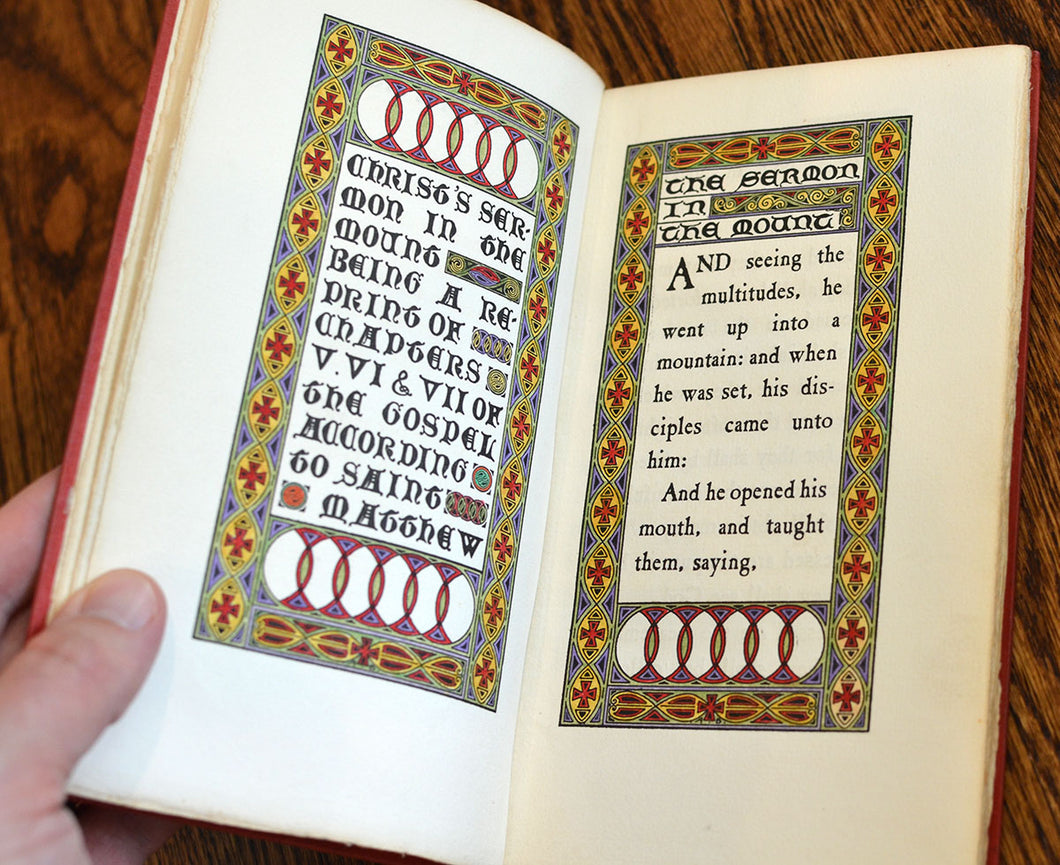 CHRIST'S SER-
MON IN THE
MOUNT
BEING A RE-
PRINT OF
CHAPTERS
V. VI & VII OF
THE GOSPEL
ACCORDING
TO SAINT
MATTHEW
THE SERMON
IN
THE MOUNT
AND seeing the
multitudes, he
went up into a
mountain: and when
he was set, his dis-
ciples came unto
him:
And he opened his
mouth, and taught
them, saying,